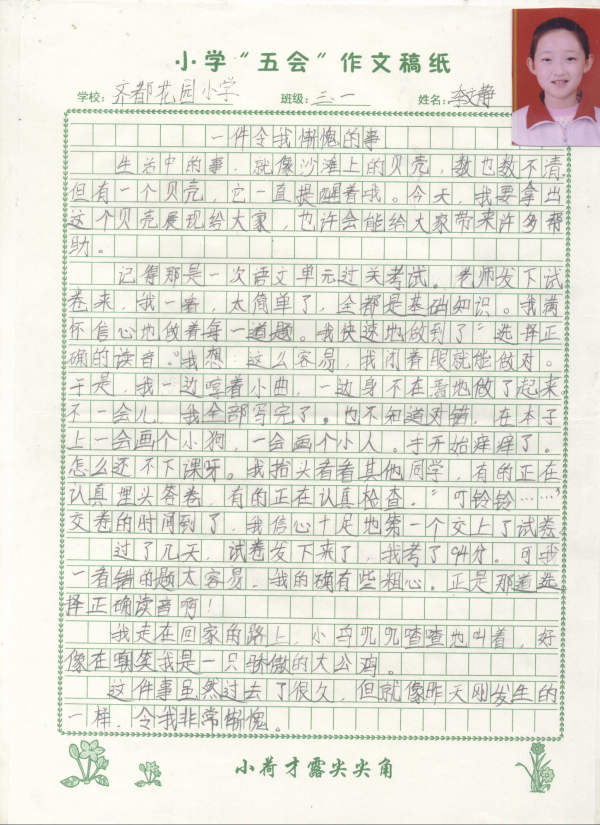 小学“五会”作文稿纸
学校：齐都花园小学 班级：三.一 姓名：李文静
一件令我惭愧的事
生活中的事，就像沙滩上的贝壳，数也数不清，
但有一个贝壳，它一直提醒着我。今天，我要拿出
这个贝壳展现给大家，也许会能给大家带来许多帮
助。
记得那是一次语文单元过关考试。老师发下试
卷来，我一看，太简单了，全都是基础知识。我满
怀信心地做着每一道题。我快速地做到了“选择正
确的读音。”我想：这么容易，我闭着眼就能做对。
于是，我一边哼着小曲，一边身不在焉地做了起来。
不一会儿，我全部写完了。也不知道对错，在本子
上一会画个小狗，一会画个小人。手开始痒痒了。
怎么还不下课呀。我抬头看看其他同学，有的正在
认真埋头答卷，有的正在认真检查，“叮铃铃……”
交卷的时间到了，我信心十足地第一个交上了试卷。
过了几天，试卷发下来了，我考了94分。可我
一看错的题太容易，我的确有些粗心。正是那道选
择正确读音啊！
我走在回家的路上，小鸟叽叽喳喳地叫着，好
像在嘲笑我是一只骄傲的大公鸡。
这件事虽然过去了很久，但就像昨天刚发生的
一样，令我非常惭愧。
小荷才露尖尖角